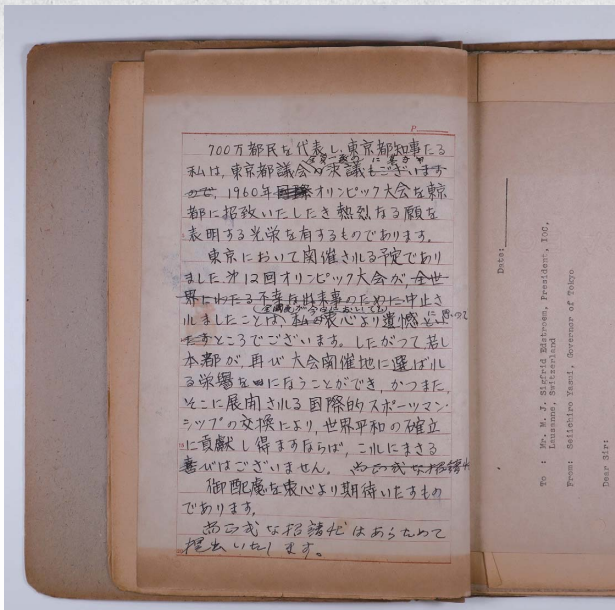 P
700万都民を代表し、東京都知事たる
全員一致の に基き
私は、東京都議会の決議もございます
ので、1960年国際オリンピック大会を東京
都に招致いたしたき熱烈なる願を
表明する光栄を有するものであります。
東京において開催される予定であり
ました第12回オリンピック大会が全世
界にわたる不幸な出来事のために中止さ
れましたことは、私の衷心より遺憾とい
に思って
たすところでございます。したがって若し
本都が、再び大会開催地に選ばれ
る栄誉をになうことができ、かつまた、
そこに展開される国際的スポーツマン・
シップの交換により、世界平和の確立
に貢献し得ますならば、これにまさる
喜びはございません。尚正式な招請状
御配慮を衷心より期待いたすもの
であります。
尚正式な招請状はあらためて
提出いたします。
Date:
To : Mr. M. J. Sigfrid Edstroem, President, IOC,
Lausanne, Switzerland
From: Seiichiro Yasui, Governor of Tokyo
Dear Sir: